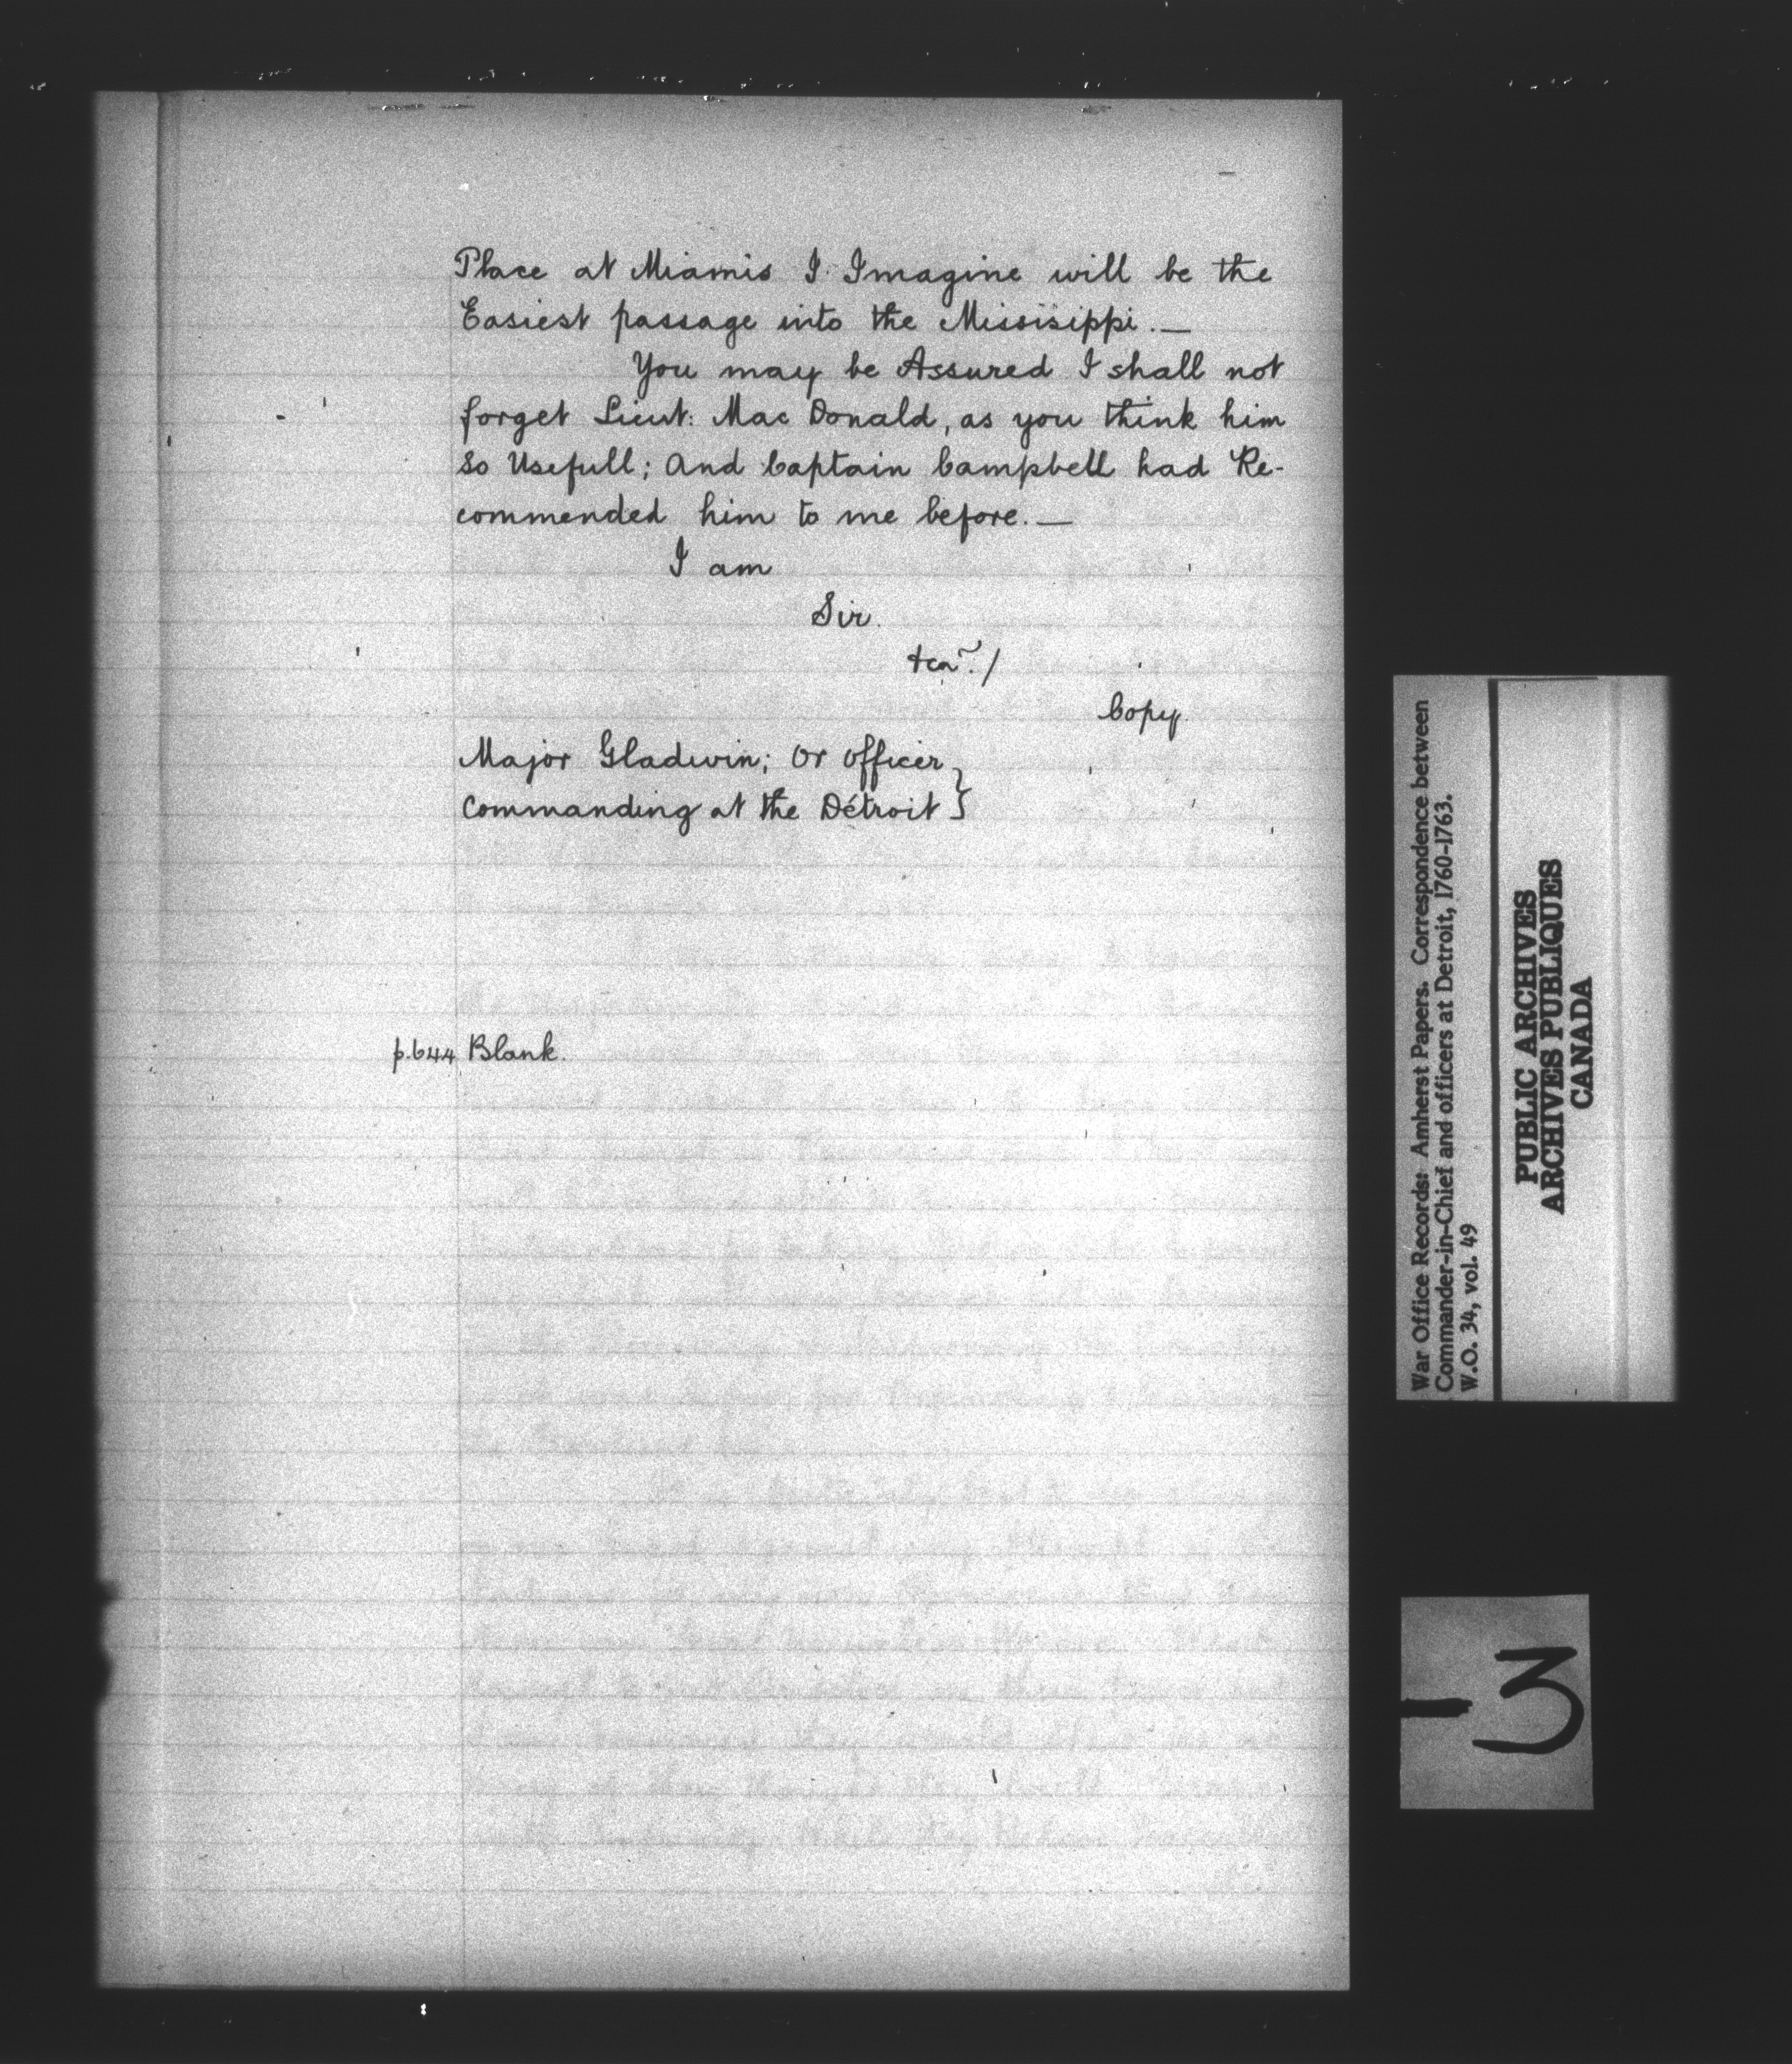 Place at Miamis I Imagine will be the
Easiest passage into the Missisippi. —
You may be Assured I shall not
forget Lieut: Mac Donald, as you think him
so Usefull; And Captain Campbell had Re-
commended him to me before. —
I am
Sir.
&ca~. /
Copy.
Major Gladwin; Or Officer }
Commanding at the Détroit }
p.644 Blank.
War Office Records: Amherst Papers. Correspondence between
Commander-in-Chief and officers at Detroit, 1760-1763.
W.O. 34, vol. 49
PUBLIC ARCHIVES
ARCHIVES PUBLIQUES
CANADA
3